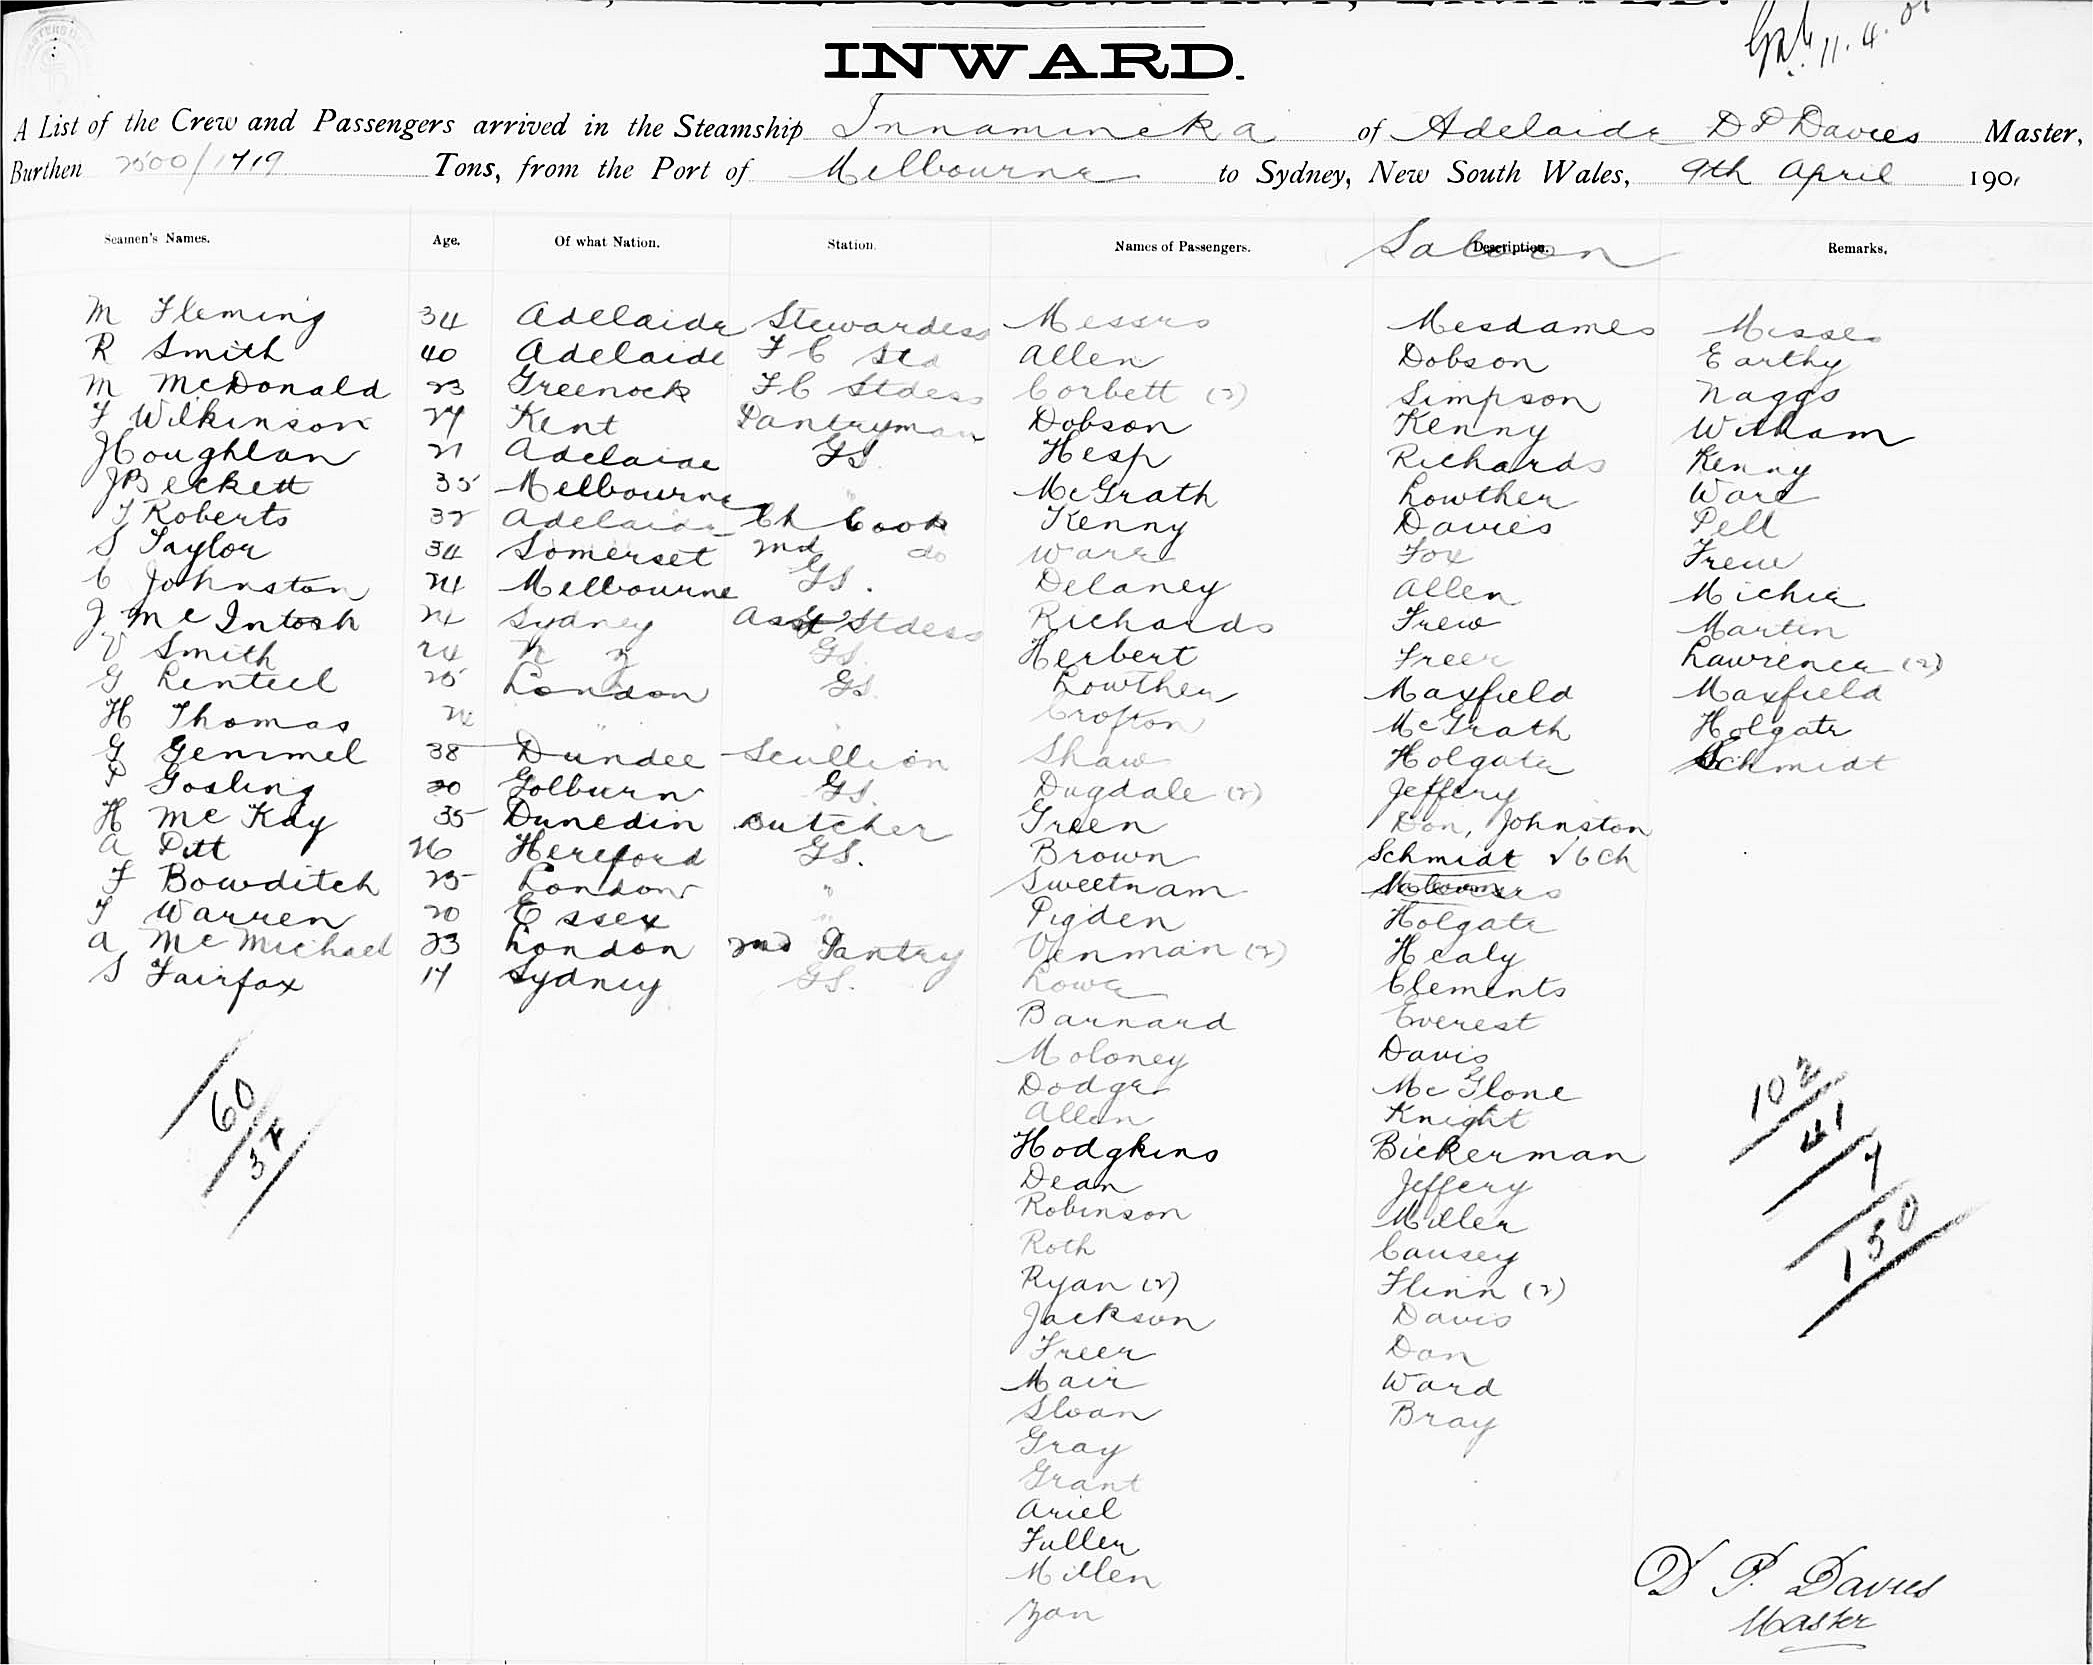 INWARD.
11.4.01
A List of the Crew and Passengers arrived in the Steamship Innamincka of Adelaide D P Davies Master,
Burthen 2500/1719 Tons, from the Port of Melbourne to Sydney, New South Wales, 9th April 1901
Seamen's Names. Age. Of what Nation. Station. Names of Passengers. Description. Saloon Remarks.
M Fleming 34 Adelaide Stewardess Messrs Mesdames Misses
R Smith 40 Adelaide F C Std Allen Dobson Earthy
M McDonald 23 Greenock F C Stdess Corbett (2) Simpson Naggs
F Wilkinson 27 Kent Pantryman Dobson Kenny Witham
J Coughlan 21 Adelaide GS. Hesp Richards Kenny
J Beckett 35 Melbourne " McGrath Lowther Ware
T Roberts 32 Adelaide Ch Cook Kenny Davies Pell
S Taylor 34 Somerset 2nd do Ware Fox Frew
C Johnston 24 Melbourne GS. Delaney Allen Michie
J McIntosh 24 Sydney Asst Stdess Richards Frew Martin
V Smith 24 N Z GS. Herbert Freer Lawrence (2)
G Lenteel 25 London GS. Lowther Maxfield Maxfield
H Thomas 24 " " Crofton McGrath Holgate
G Gemmel 38 Dundee Scullion Shaw Holgate Schmidt
P Gosling 20 Golburn GS. Dugdale (2) Jeffery
H McKay 35 Dunedin Butcher Green Don, Johnston
A Pitt 26 Hereford GS. Brown Schmidt & 6 Ch
F Bowditch 25 London " Sweetnam
T Warren 20 Essex " Pigden Holgate
A McMichael 23 London 2nd Pantry Venman (2) Healy
S Fairfax 17 Sydney GS. Lowe Clements
Barnard Everest
Moloney Davis
Dodge McGlone
Allen Knight
Hodgkins Bickerman
Dean Jeffery
Robinson Miller
Roth Causey
Ryan (2) Flinn (2)
Jackson Davis
Freer Don
Mair Ward
Sloan Bray
Gray
Grant
Ariel
Fuller
Millen
Zan
60
34
102
41
7
150
D P. Davies
Master